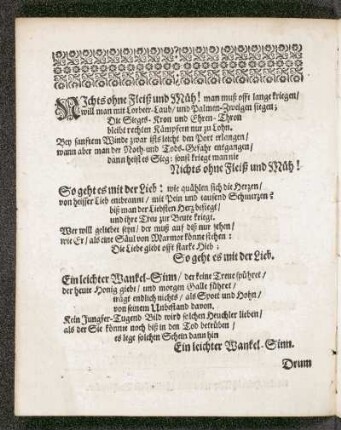 NIchts ohne Fleiß und Müh! man muß offt lange kriegen/
will man mit Lorbeer-Laub/ und Palmen-Zweigen siegen;
Die Sieges-Kron und Ehren-Thron
bleibt rechten Kämpfern nur zu Lohn.
Bey sanftem Winde zwar ists leicht den Port erlangen/
wann aber man der Noth-und Tods-Gefahr entgangen/
dann heist es Sieg: sonst kriegt man nie
Nichts ohne Fleiß und Müh!
So geht es mit der Lieb: wie quählen sich die Hertzen/
von heisser Lieb entbrannt/ mit Pein und tausend Schmertzen:
biß man der Liebsten Hertz besiegt/
und ihre Treu zur Beute kriegt.
Wer will geliebet seyn/ der muß auf diß nur sehen/
wie Er/ als eine Säul von Marmor könne stehen:
Die Liebe giebt offt starke Hieb;
So geht es mit der Lieb.
Ein leichter Wankel-Sinn/ der keine Treue spühret/
der heute Honig giebt/ und morgen Galle führet/
trägt endlich nichts/ als Spott und Hohn/
von seinem Unbestand davon.
Kein Jungfer-Tugend Bild wird solchen Heuchler lieben/
als der Sie könnte noch biß in den Tod betrüben/
es lege solchen Schein dann hin
Ein leichter Wankel-Sinn.
Drum